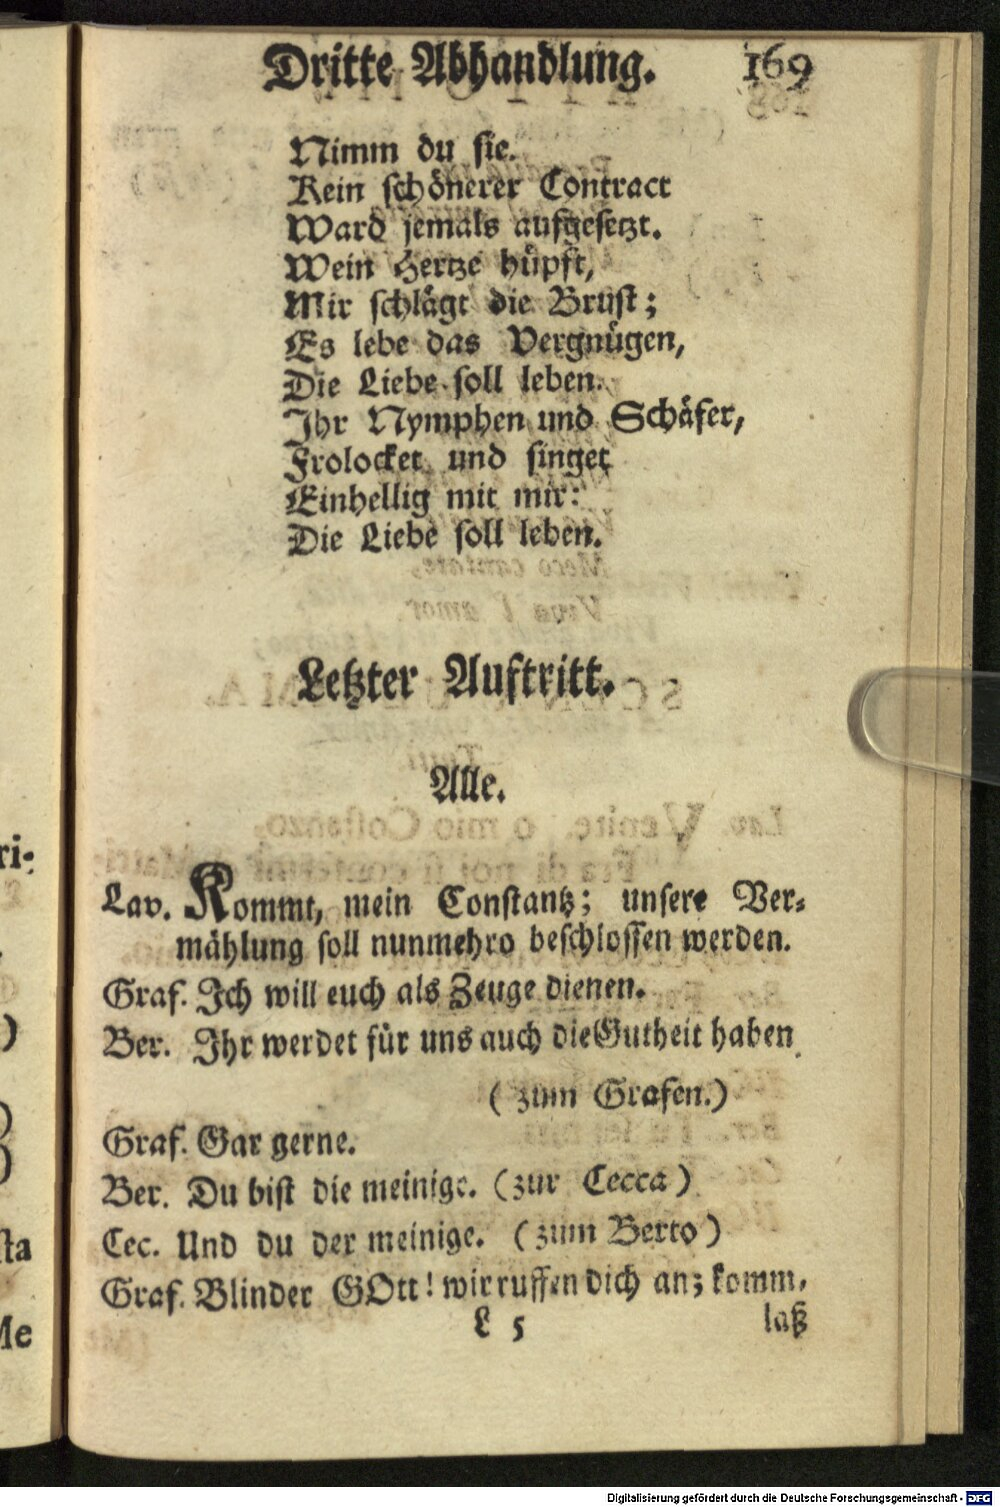 Dritte Abhandlung. 169
Nimm du sie.
Kein schönerer Contract
Ward jemals aufgesetzt.
Mein Hertze hüpft,
Mir schlägt die Brust;
Es lebe das Vergnügen,
Die Liebe soll leben.
Ihr Nymphen und Schäfer,
Frolocket und singet
Einhellig mit mir:
Die Liebe soll leben.
Letzter Auftritt.
Alle.
Lav. Kommt, mein Constantz; unsere Ver-
mählung soll nunmehro beschlossen werden.
Graf. Ich will euch als Zeuge dienen.
Ber. Ihr werdet für uns auch die Gutheit haben
(zum Grafen.)
Graf. Gar gerne.
Ber. Du bist die meinige. (zur Cecca)
Cec. Und du der meinige. (zum Berto)
Graf. Blinder GOtt! wir ruffen dich an; komm,
L 5 laß
ri-
)
)
)
sta
Me
Digitalisierung gefördert durch die Deutsche Forschungsgemeinschaft - DFG